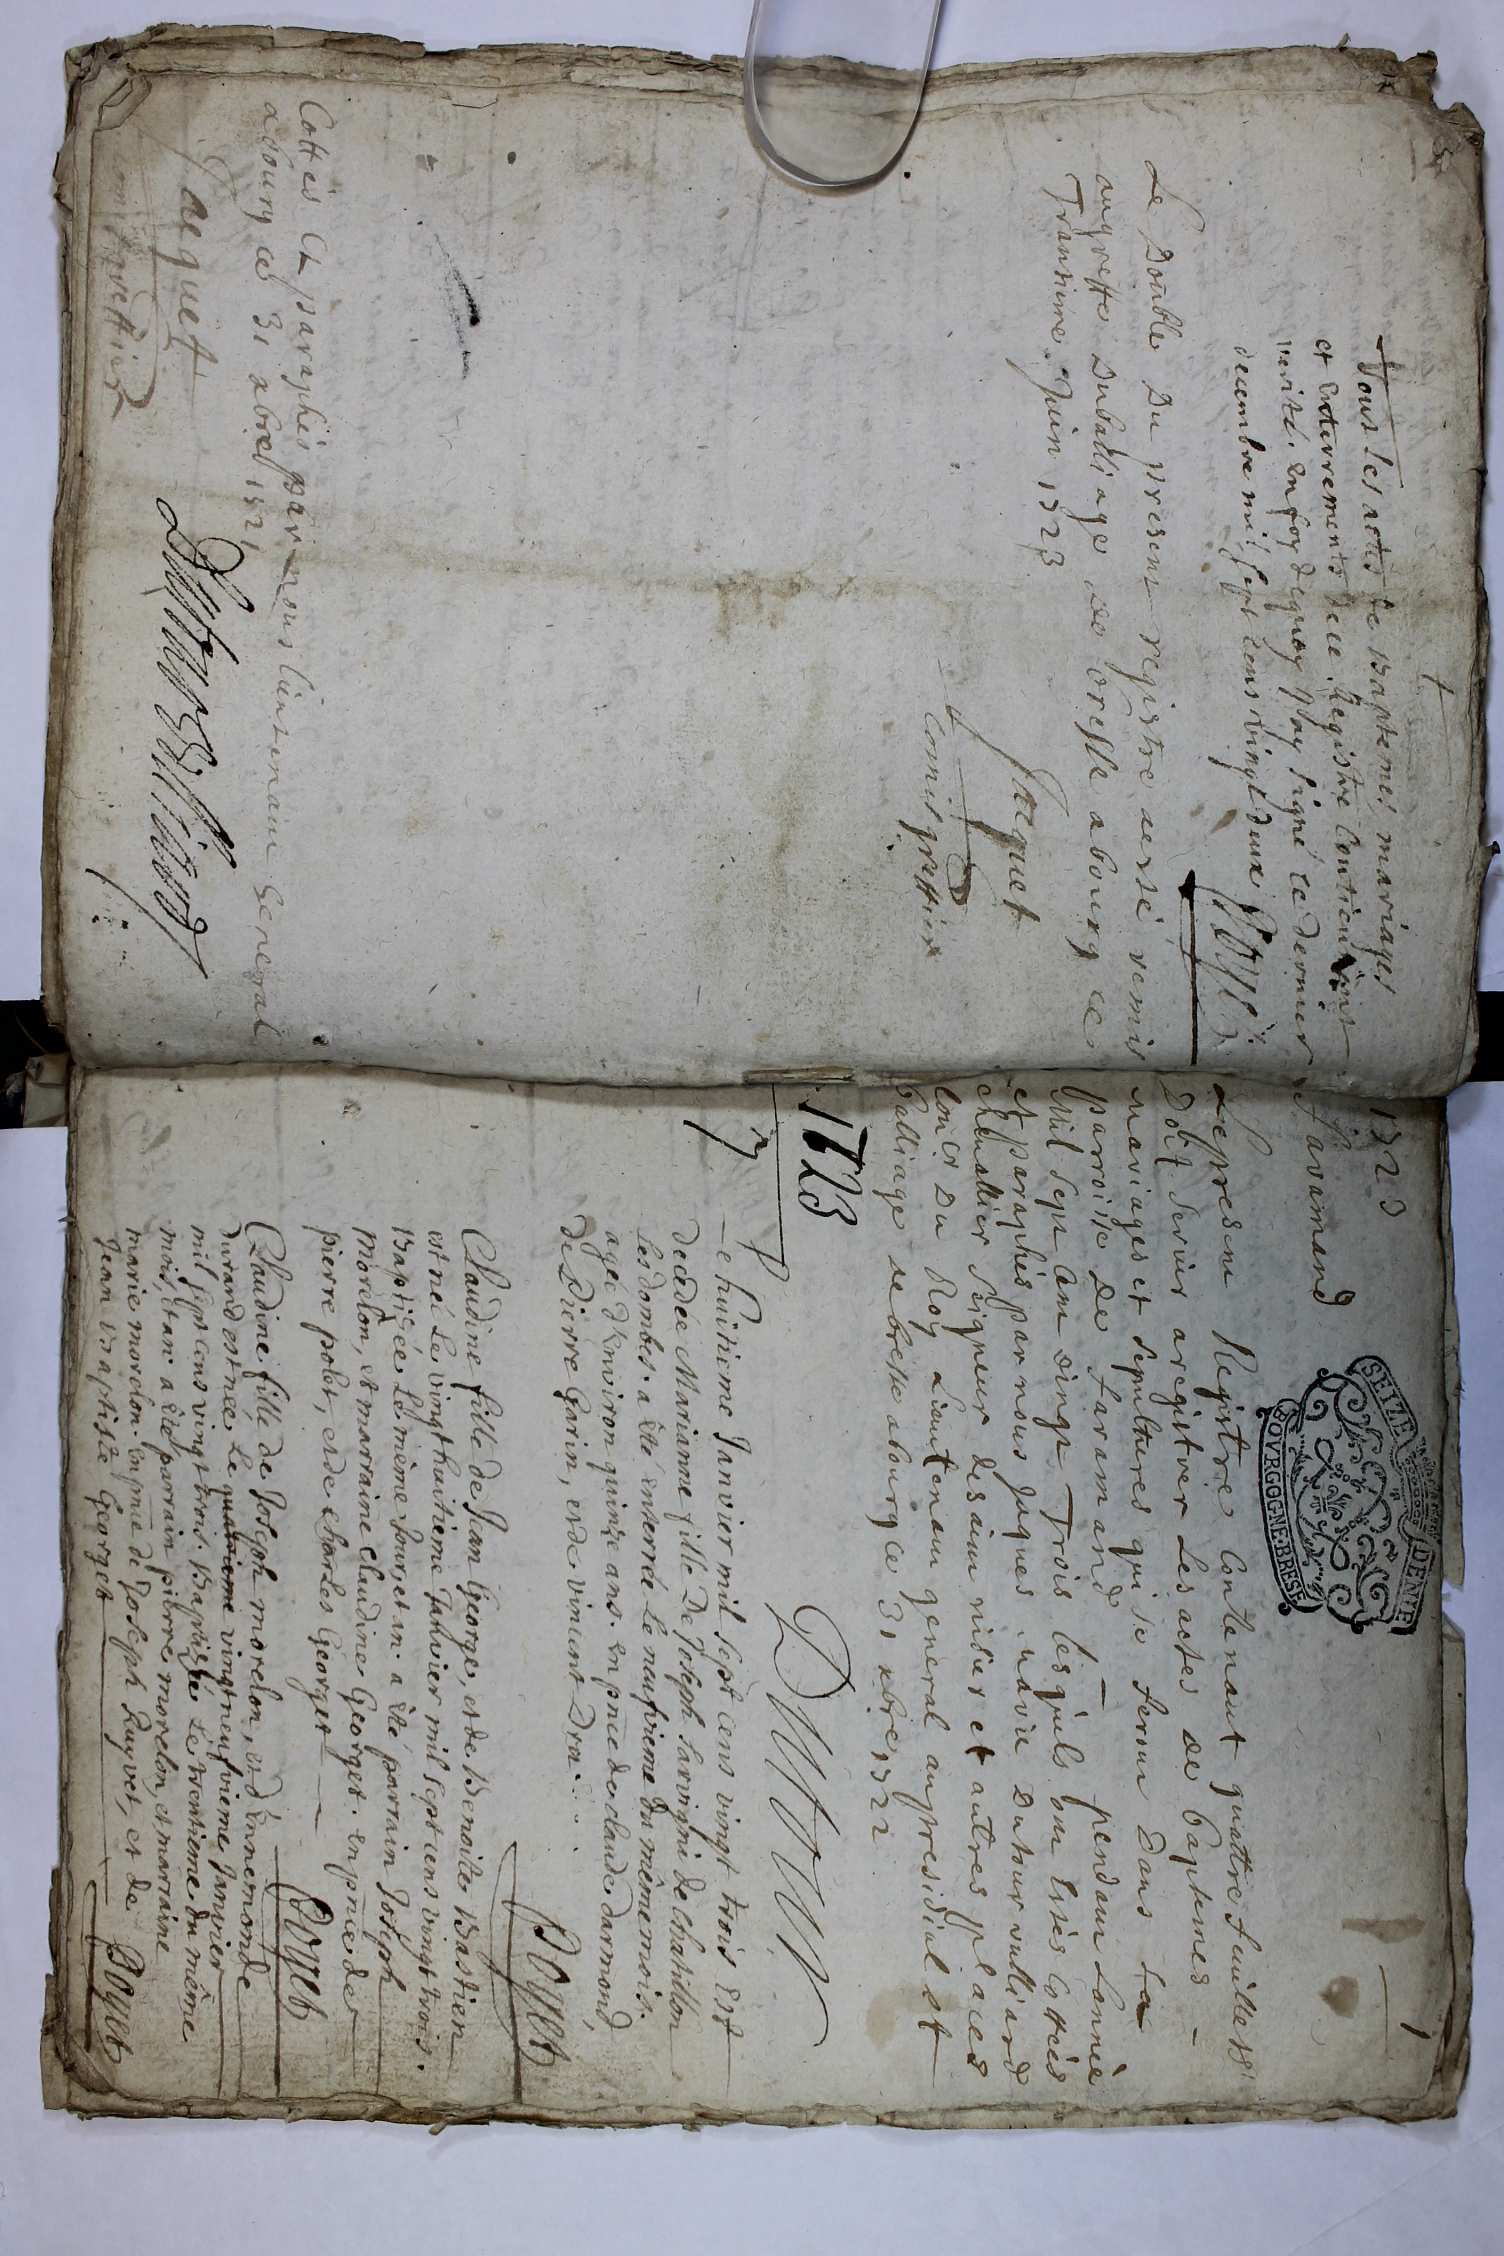 Tous les actes de Baptemes mariages
et Enterrements de ce Registre Contienent
verité. En foy dequoy j'ay signé ce dernier
decembre mil sept cens vingt deux
Le Double Du present registre aesté remis
augreffe Du balliage de bresse abourg ce
Jaquet
Commis greffier
Cottés et paraphés par nous Lieutenant General
abourg ce 31 xbre 1721
Jaquet
1723
1
Faramand
SEIZE DENIE
BOVRGOGNE BRESE
Le present Registre Contenant quattre feuillets
Doit servir aregistrer Les actes de baptemes
mariages et sepultures qui se feront Dans La
parroisse de faramand pendant Lannée
mil sept Cent vingt Trois lesquels ont Estés Cottés
et paraphés par nous Jaques marie Duthour vulliard
chevallier seigneur de saint nidier et autres places
Con.er Du Roy Lieutenant general aupresidial et
balliage de bresse abourg ce 31 xbre 1722
1723
Le huitieme Janvier mil sept cens vingt trois Est
decedée Marianne fille De Joseph Sarvigni de Chatillon
les dombes. a été enterrée le neufvieme du même mois.
agée d'Environ quinze ans. en pnce de claude darmond,
de Pierre Garin, et de vincent Dra
Poget
Claudine fille de Jean George, et de Benoite Bastien
est née Le vingt huitieme Janvier mil sept cens vingt trois.
Baptisée Le même Jour, et an. a été parrain Joseph
Morelon, et marraine claudine Georget. en pnce de
pierre polet, et de charles Georget
Poget
Claudine fille de Joseph morelon, et d'Annemonde
durand est née Le quatrieme vingt neufvieme Janvier
mil sept cens vingt trois. Baptisée Le trentieme du même
mois, et an. a été parrain pierre morelon, et marraine
marie morelon. en pnce de Joseph Ruyvet, et de
Jean Baptiste Georget
Poget